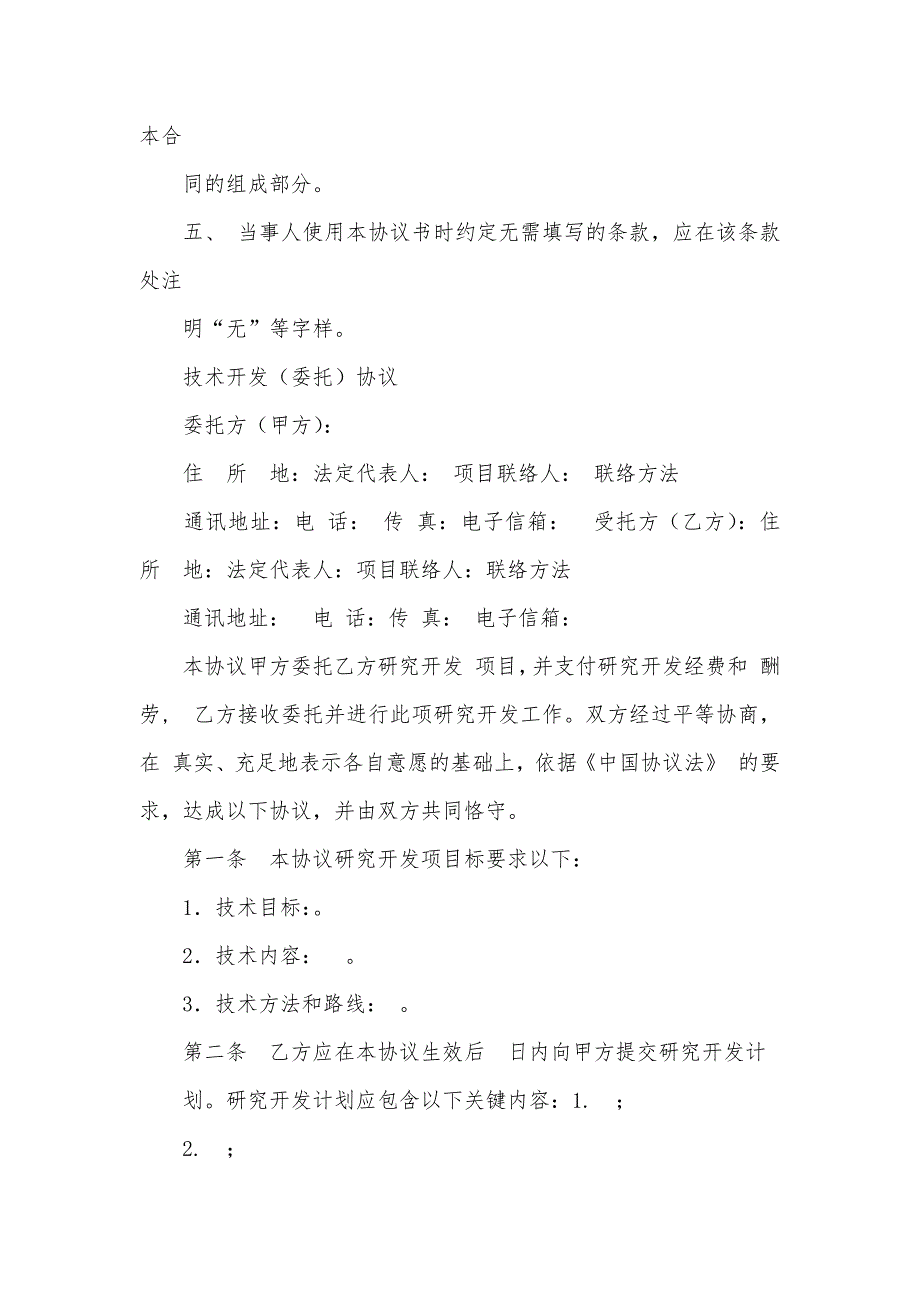 本合
同的组成部分。
五、 当事人使用本协议书时约定无需填写的条款，应在该条款
处注
明“无”等字样。
技术开发（委托）协议
委托方（甲方）：
住　所　地：法定代表人： 项目联络人： 联络方法
通讯地址：电 话： 传 真：电子信箱：　受托方（乙方）：住
所　地：法定代表人：项目联络人：联络方法
通讯地址：　电 话：传 真： 电子信箱：
本协议甲方委托乙方研究开发 项目，并支付研究开发经费和 酬
劳， 乙方接收委托并进行此项研究开发工作。双方经过平等协商，
在 真实、充足地表示各自意愿的基础上，依据《中国协议法》 的要
求，达成以下协议，并由双方共同恪守。
第一条　本协议研究开发项目标要求以下：
1．技术目标：。
2．技术内容：　。
3．技术方法和路线： 。
第二条　乙方应在本协议生效后　日内向甲方提交研究开发计
划。研究开发计划应包含以下关键内容：1.　；
2.　；